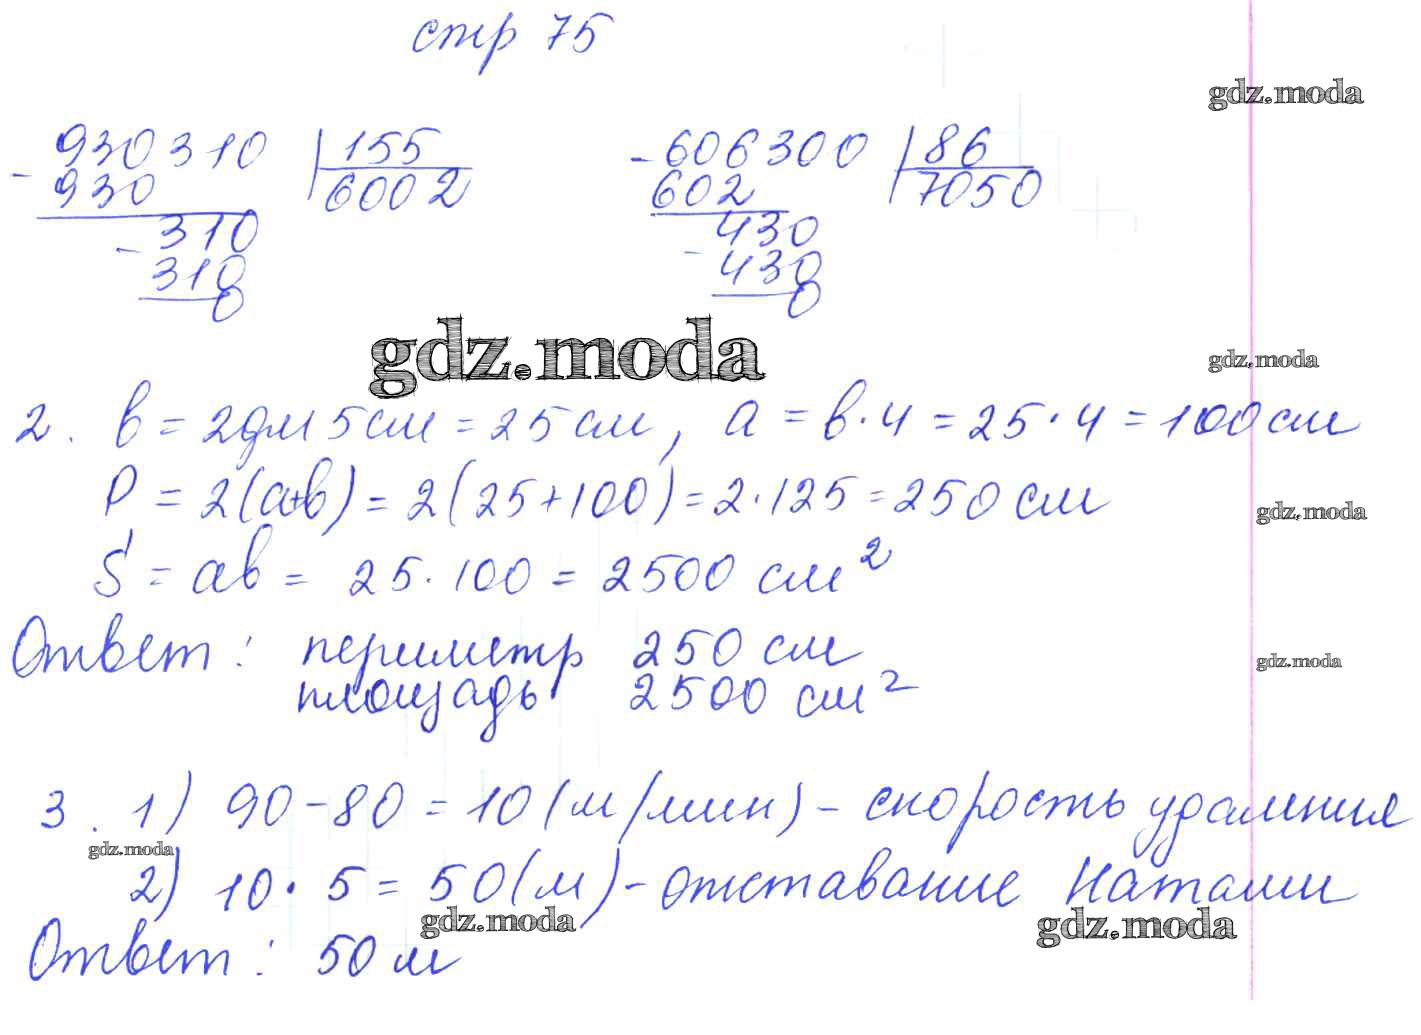 стр 75
gdz.moda
- 930310 | 155
930 6002
- 310
310
0
- 606300 | 86
602 7050
- 430
430
0
gdz.moda
gdz.moda
2. в = 2дм 5см = 25 см, а = в · 4 = 25 · 4 = 100 см
P = 2(а+в) = 2(25+100) = 2 · 125 = 250 см
gdz.moda
S = ав = 25 · 100 = 2500 см²
Ответ: периметр 250 см
gdz.moda
площадь 2500 см²
3. 1) 90 - 80 = 10 (м/мин) - скорость удаления
gdz.moda
2) 10 · 5 = 50 (м) - отставание Натали
gdz.moda
gdz.moda
Ответ: 50 м